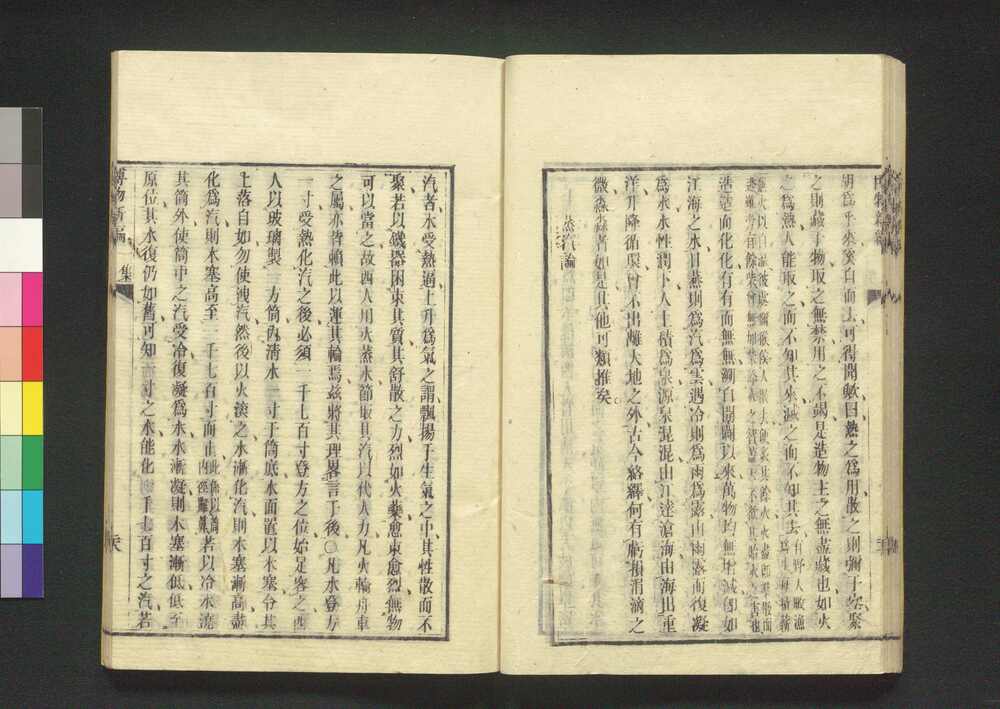 胡爲乎來奚自而去可得聞歟曰熱之爲用散之則彌于六合聚
之則藏于物取之無禁用之不竭是造物主之無盡藏也如火
之爲熱人能取之而不知其來滅之而不知其去有野人
江海之水日蒸則爲汽爲雲遇冷則爲雨爲露由雨露而復凝
爲水水性潤下人土積爲泉源泉混混由江達滄海由海出重
洋升降循環曾不出離大地之外古今絡繹何有虧損涓滴之
微淼淼者如是其他可類推矣
蒸汽論
汽者水受熱過上升爲氣之謂飄揚于生氣之中其性散而不
聚若以鐵器困束其質其舒散之力烈如火藥愈束愈烈無物
可以當之故西人用火蒸水節取其汽以代人力凡火輪舟車
之屬亦皆賴此以運其輪焉茲將其理畧言于後○凡水登方
一寸受熱化汽之後必須一千七百寸登方之位始足容之西
人以玻璃製一方筒內淸水一寸于筒底水面置以木塞令其
上落自如勿使洩汽然後以火演之水漸化汽則木塞漸高盡
化爲汽則木塞高至一千七百寸而止若以冷水澆
其筒外使筒中之汽受冷復凝爲水水漸凝則木塞漸低低至
原位其水復仍如舊可知一寸之水能化一千七百寸之汽若
博物新編
一集